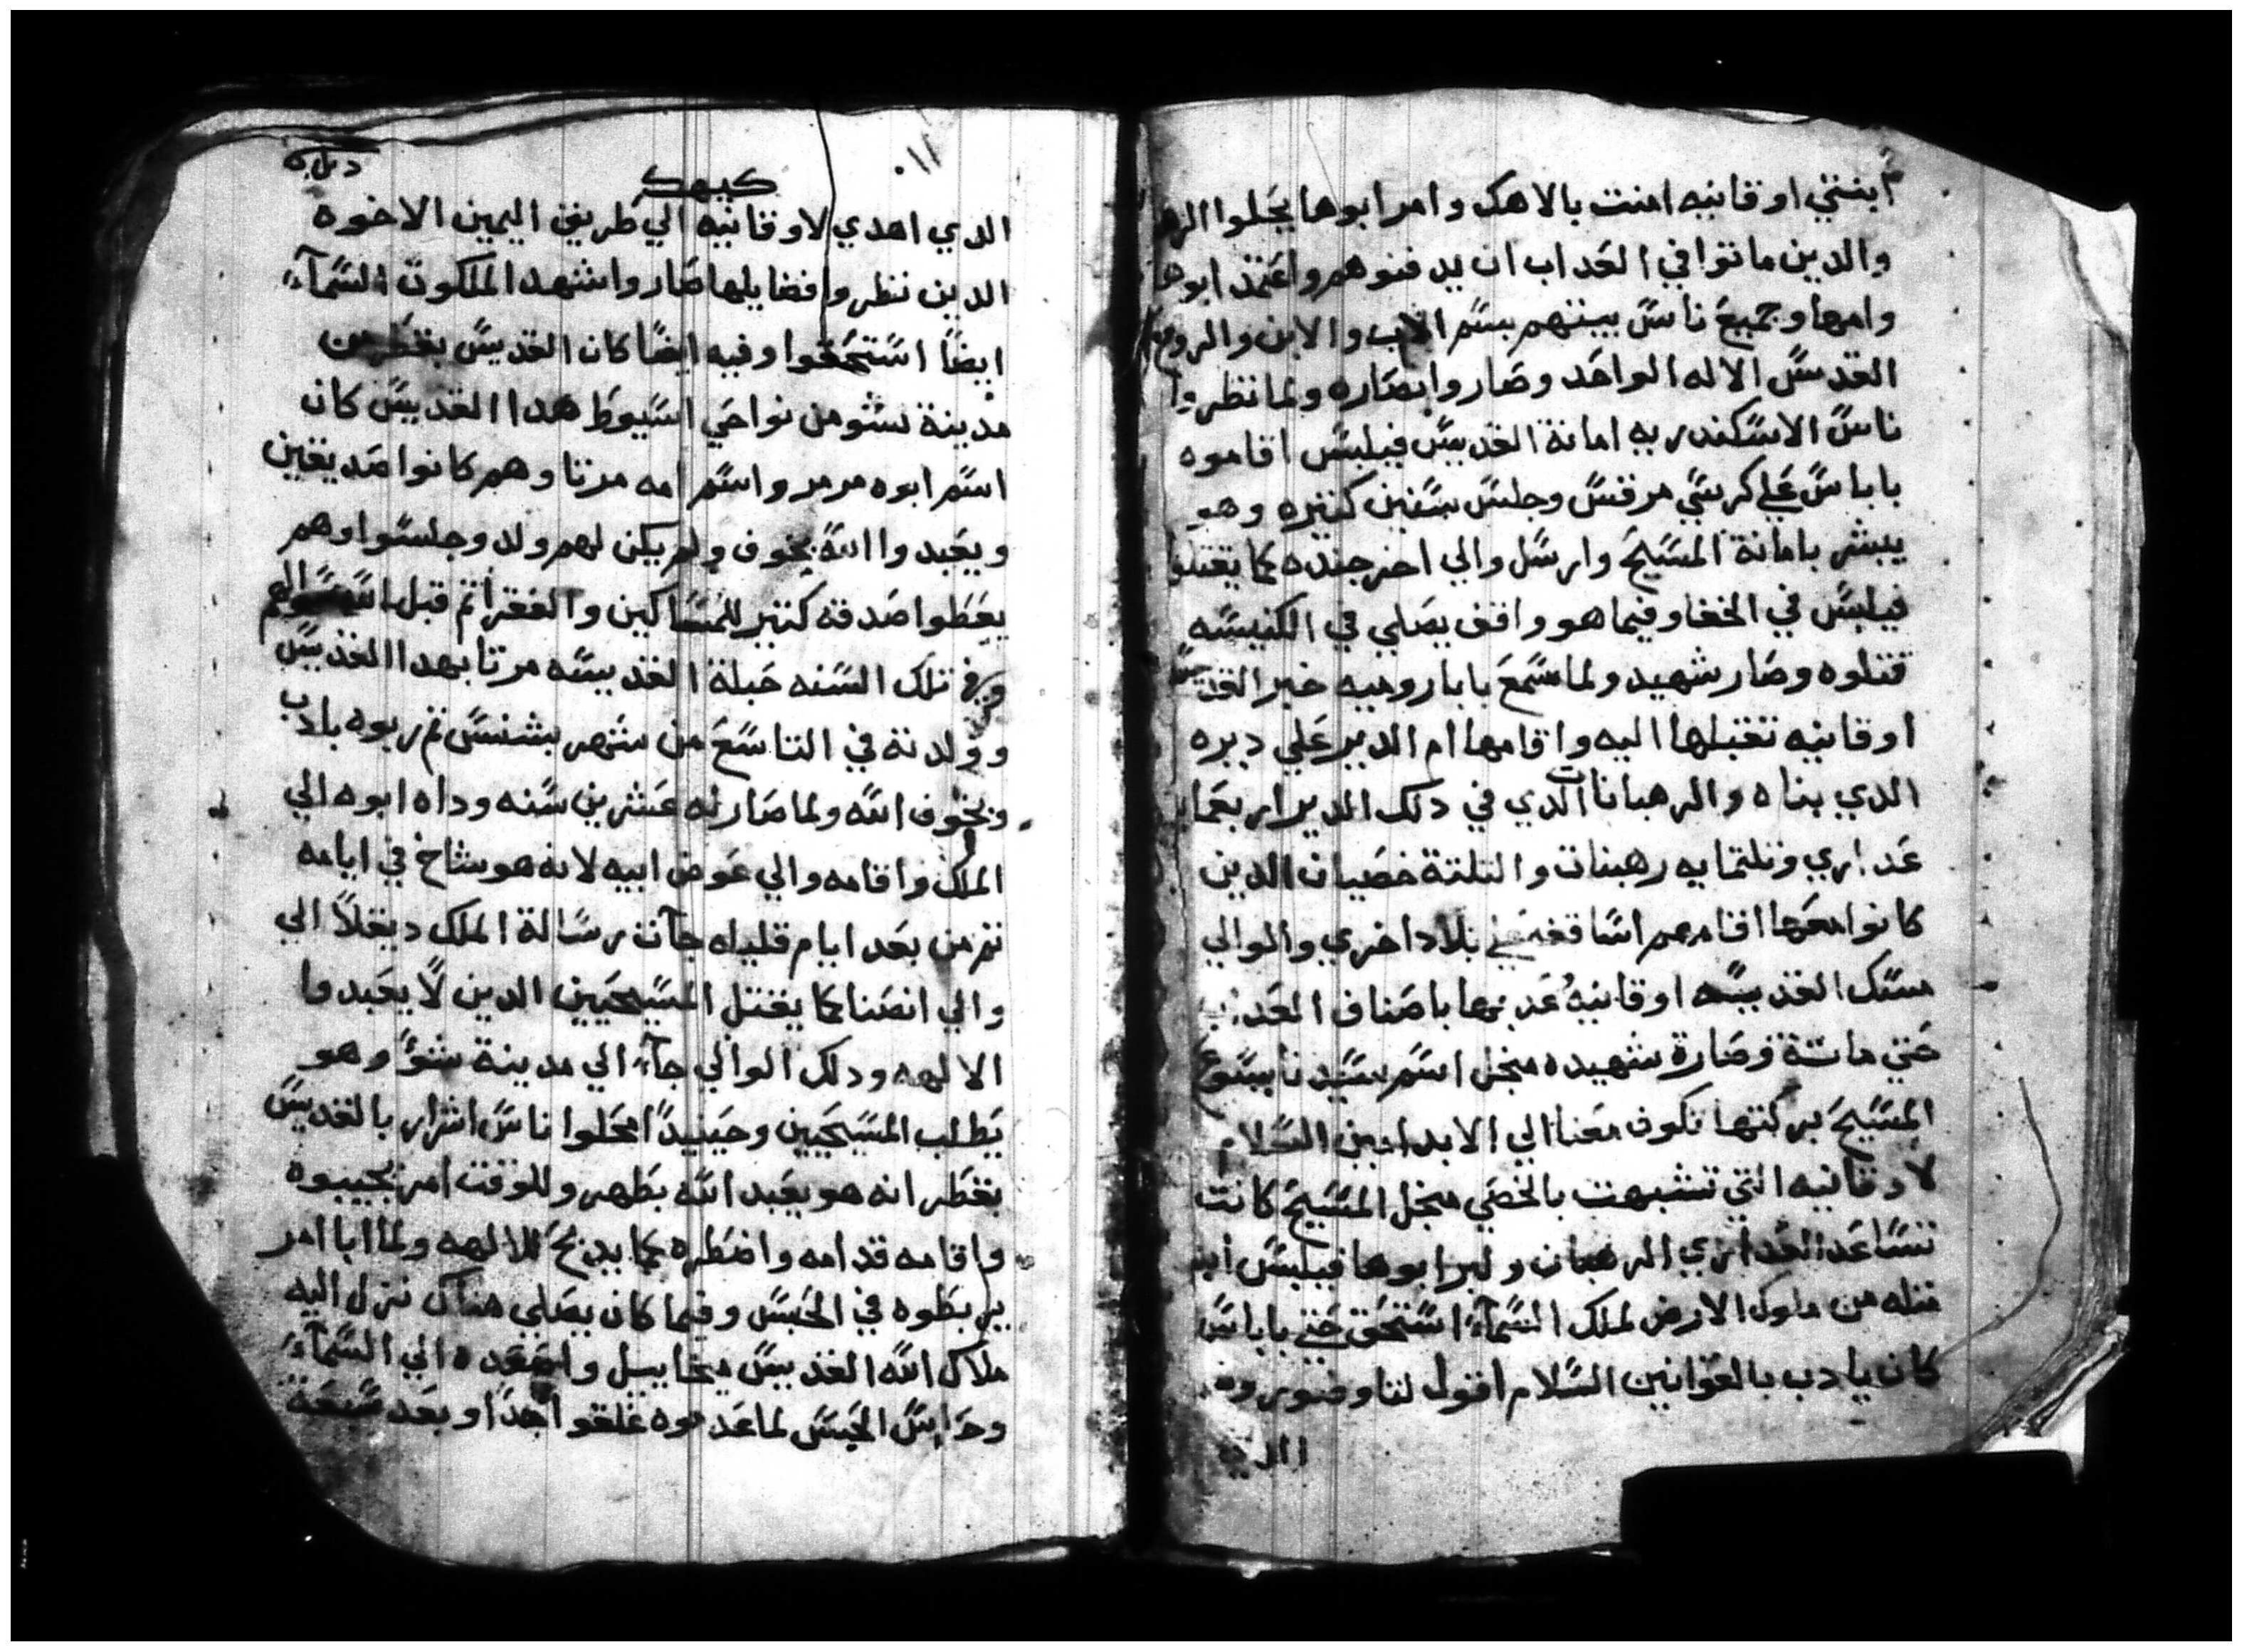 ابنتي اوقانيه امنت بالاهك وامر ابوها يحلوا
والدين ماتوا في العداب ان يدفنوهم واعتمد ابوها
وامها وجميع ناس بيتهم بسم الاب والابن والروح
القدس الاله الواحد وصاروا نصاره ولما نظروا
ناس الاسكندريه امانة القديس فيلبس اقاموه
باباس علي كرسي مرقس وجلس سنين كتيره وهو
يبشر بامانة المسيح وارسل والي اخر جنده كما يقتلوا
فيلبس في الخفا وفيما هو واقف يصلي في الكنيسه
قتلوه وصار شهيد ولما سمع بابا روميه خبر القديسه
اوقانيه تقبلها اليه واقامها ام الدير علي ديره
الدي بناه والرهبانات الدي في دلك الدير اربعمايه
عداري وتلتمايه رهبنات والتلتة خصيان الدين
كانوا معها اقامهم اساقفه في بلاد اخري والوالي
مسك القديسه اوقانيه عدبها باصناف العداب
حتي ماتة وصارة شهيده منجل اسم سيدنا يسوع
المسيح بركتها تكون معنا الي الابد امين السلام
لاوقانيه التي تشبهت بالخصي منجل المسيح كانت
تساعد العداري الرهبان ولبر ابوها فيلبس
متله من ملوك الارض لملك السمآء استحق حتي باباس
كان يادب بالقوانين السلام اقول لتاوفنوس
الدي
كيهك
الدي اهدي لاوقانيه الي طريق اليمين الاخوه
الدين نظروا فضايلها صاروا شهدا لملكوت السمآء
ايضًا استحقوا وفيه ايضًا كان القديس بقطر من
مدينة شو من نواحي اسيوط هدا القديس كان
اسم ابوه مرمر واسم امه مرتا وهم كانوا صديقين
ويعبدوا الله بخوف ولم يكن لهم ولد وجلسوا وهم
يعطوا صدقه كتير للمساكين والفقرا تم قبل الله سوالهم
وفي تلك السنه حبلة القديسه مرتا بهدا القديس
وولدته في التاسع من شهر بشنس تم ربوه بادب
وبخوف الله ولما صار له عشرين سنه وداه ابوه الي
الملك واقامه والي عوض ابيه لانه هو شاخ في ايامه
تم من بعد ايام قليله جآت رسالة الملك ديقلا الي
والي انصنا كما يقتل المسيحيين الدين لا يعبدوا
الالهه ودلك الوالي جآء الي مدينة شو وهو
يطلب المسيحيين وحينيدًا محلوا ناس اشرار بالقديس
بقطر انه هو يعبد الله بطهر وللوقت امر يجيبوه
واقامه قدامه واضطره كما يدبح للالهه ولما ابا امر
يربطوه في الحبس وفيما كان يصلي هناك نزل اليه
ملاك الله القديس ميخاييل واصعده الي السمآء
وحراس الحبس لما عدموه غلقوا جدًا وبعد سبعة